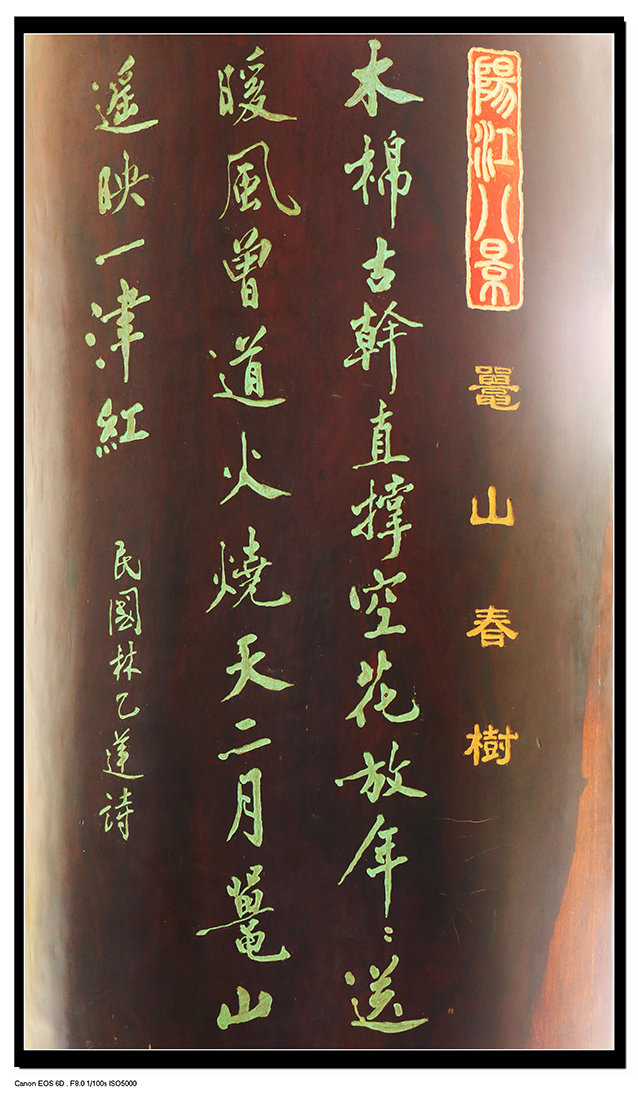 陽江八景
鼉山春樹
木棉古幹直撐空花放年：送
暖風曾道火燒天二月鼉山
遥映一津紅
民國林乙蓮詩
Canon EOS 6D . F8.0 1/100s ISO5000